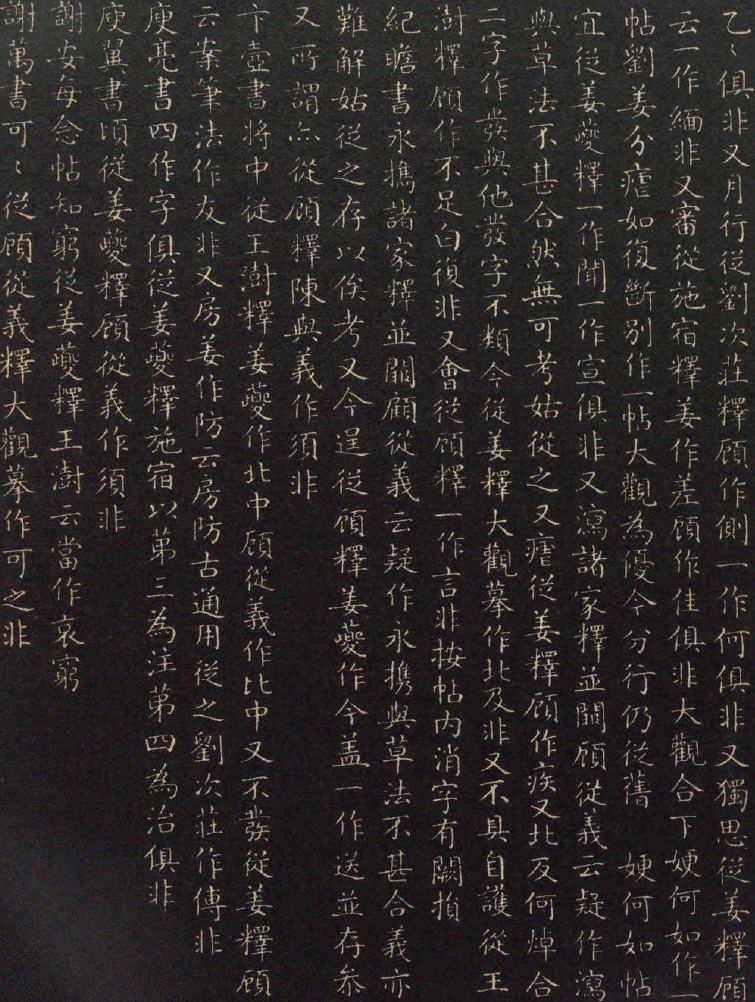 乙〻俱非又月行從劉次莊釋顧作側一作何俱非又獨思從姜釋顧
云一作緬非又審從施宿釋姜作差顧作佳俱非大觀合下㛐何如作一
帖劉姜分瘧如復斷別作一帖大觀為優今分行仍從舊　㛐何如帖
宜從姜夔釋一作閒一作宣俱非又瀉諸家釋並闕顧從義云疑作瀉
與草法不甚合然無可考姑從之又瘧從姜釋顧作疾又北反何焯合
二字作發與他發字不類今從姜釋大觀摹作北及非又不具自護從王
澍釋顧作不足白復非又會從顧釋一作言非按帖內消字有闕損
紀瞻書永攜諸家釋並闕顧從義云疑作永攜與草法不甚合義亦
難解姑從之存以俟考又今逞從顧釋姜夔作今盖一作送並存叅
又所謂点從顧釋陳與義作須非
卞壼書將中從王澍釋姜夔作北中顧從義作比中又不發從姜釋顧
云案筆法作友非又房姜作防云房防古通用從之劉次莊作傳非
庾亮書四作字俱從姜夔釋施宿以第三為注第四為治俱非
庾翼書頃從姜夔釋顧從義作須非
謝安每念帖知窮從姜夔釋王澍云當作哀窮
謝萬書可〻從顧從義釋大觀摹作可之非